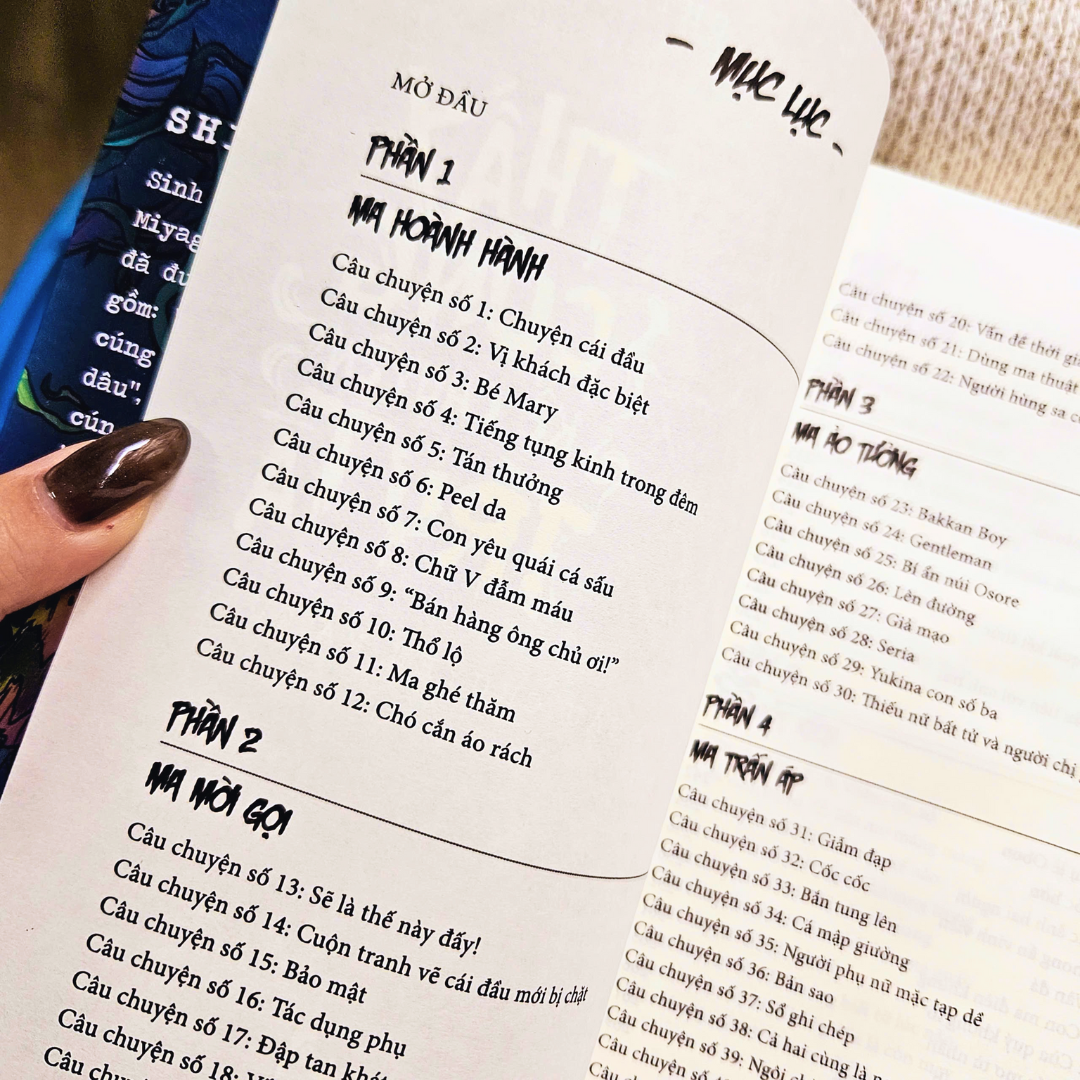 Sinh
đã
gồm:
cúng
dâu",
- MỤC LỤC -
MỞ ĐẦU
PHẦN 1
MA HOÀNH HÀNH
Câu chuyện số 1: Chuyện cái đầu
Câu chuyện số 2: Vị khách đặc biệt
Câu chuyện số 3: Bé Mary
Câu chuyện số 4: Tiếng tụng kinh trong đêm
Câu chuyện số 5: Tán thưởng
Câu chuyện số 6: Peel da
Câu chuyện số 7: Con yêu quái cá sấu
Câu chuyện số 8: Chữ V đẫm máu
Câu chuyện số 9: “Bán hàng ông chủ ơi!”
Câu chuyện số 10: Thổ lộ
Câu chuyện số 11: Ma ghé thăm
Câu chuyện số 12: Chó cắn áo rách
PHẦN 2
MA MỜI GỌI
Câu chuyện số 13: Sẽ là thế này đấy!
Câu chuyện số 14: Cuộn tranh vẽ cái đầu mới bị chặt
Câu chuyện số 15: Bảo mật
Câu chuyện số 16: Tác dụng phụ
Câu chuyện số 17: Đập tan
Câu chuyện số 18:
Câu chuyện số 20: Vấn đề thời
Câu chuyện số 21: Dùng ma thuật
Câu chuyện số 22: Người hùng sa
PHẦN 3
MA ẢO TƯỞNG
Câu chuyện số 23: Bakkan Boy
Câu chuyện số 24: Gentleman
Câu chuyện số 25: Bí ẩn núi Osore
Câu chuyện số 26: Lên đường
Câu chuyện số 27: Giả mạo
Câu chuyện số 28: Seria
Câu chuyện số 29: Yukina con số ba
Câu chuyện số 30: Thiếu nữ bất tử và người chị
PHẦN 4
MA TRẤN ÁP
Câu chuyện số 31: Giẫm đạp
Câu chuyện số 32: Cốc cốc
Câu chuyện số 33: Bắn tung lên
Câu chuyện số 34: Cá mập giường
Câu chuyện số 35: Người phụ nữ mặc tạp dề
Câu chuyện số 36: Bản sao
Câu chuyện số 37: Sổ ghi chép
Câu chuyện số 38: Cả hai cùng là
Câu chuyện số 39: Ngôi